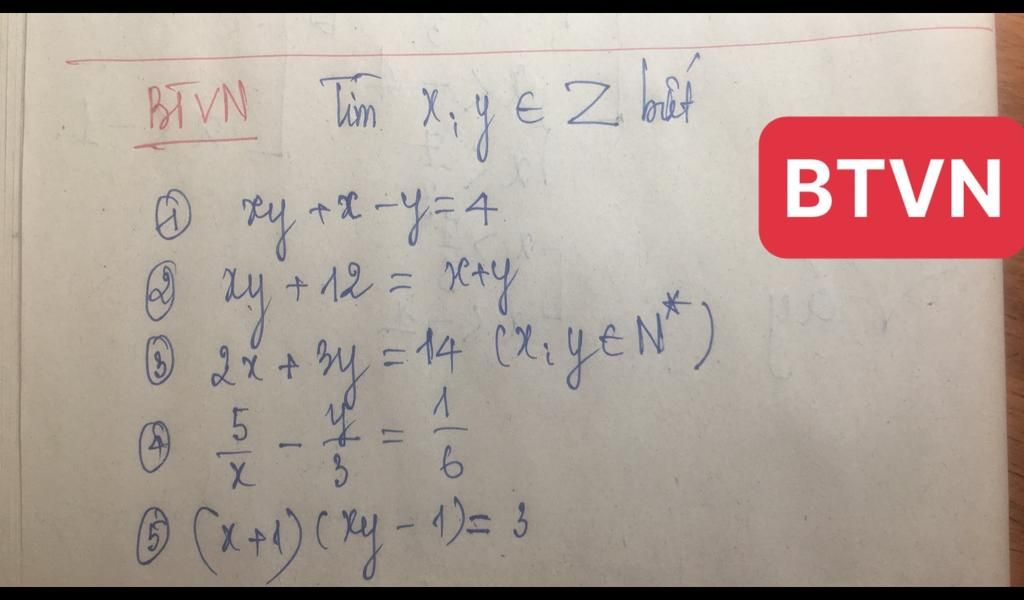 BTVN Tìm x; y ∈ Z biết
BTVN
① xy + x - y = 4
② xy + 12 = x+y
③ 2x + 3y = 14 (x; y ∈ N*)
④ 5/x - y/3 = 1/6
⑤ (x+1)(xy - 1) = 3